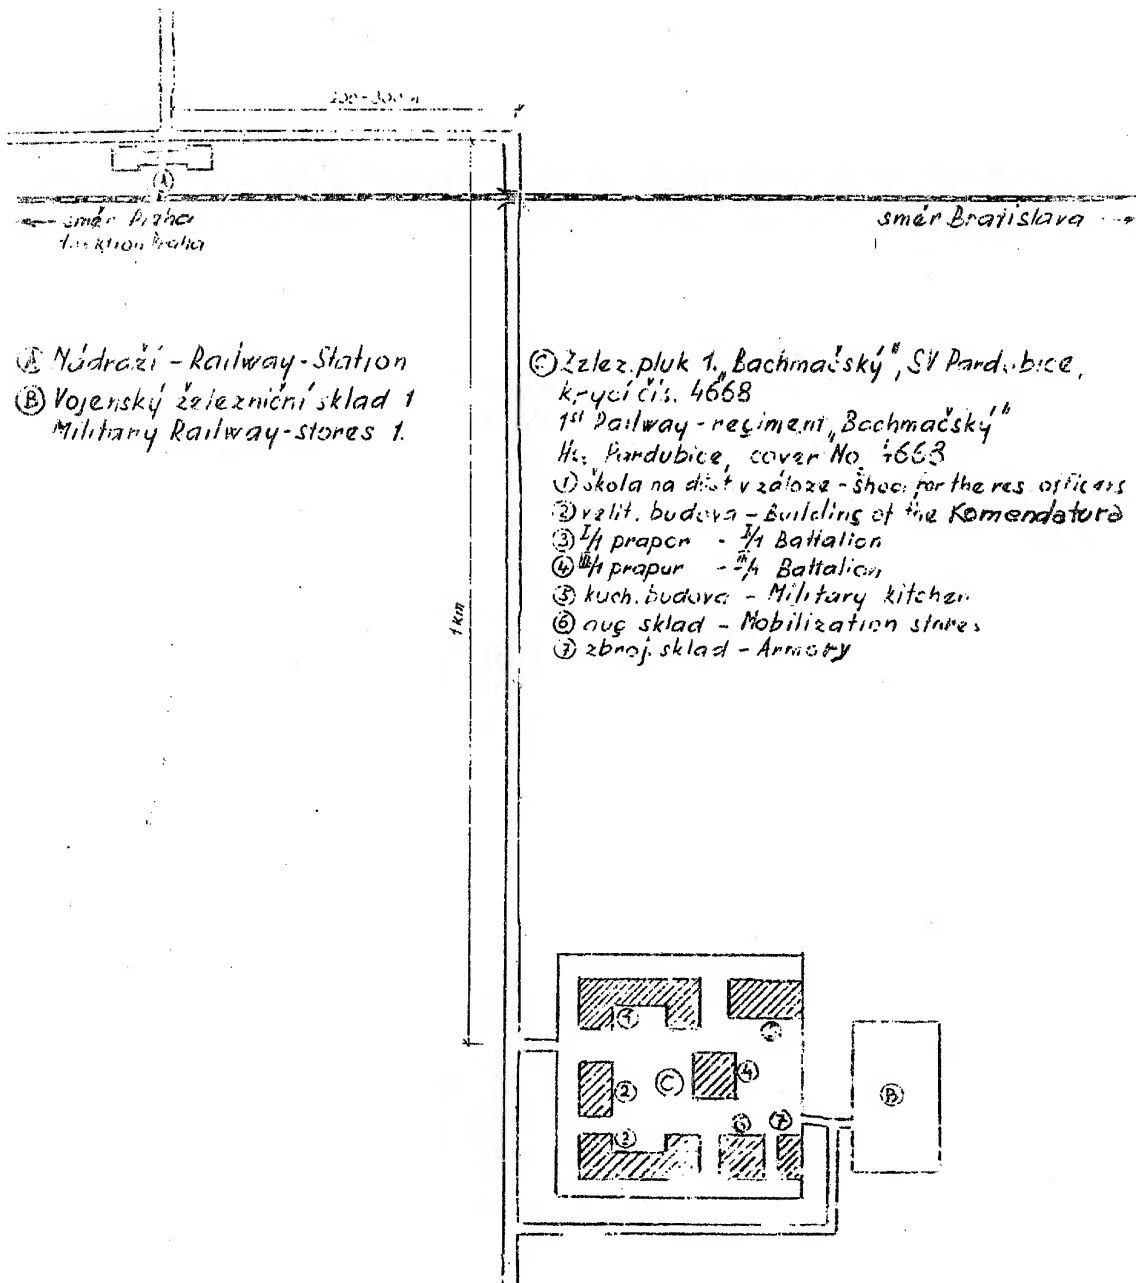 200-300 m
(A)
← směr Praha
směr Bratislava →
(A) Nádraží - Railway-Station
(B) Vojenský železniční sklad 1
Military Railway-stores 1.
(C) Želez. pluk 1. „Bachmačský", SV Pardubice,
krycí čís. 4668
1st Railway-regiment „Bachmačský"
Pardubice, cover No. 4668
(1) škola na dúst v záloze - for the res. officers
(2) velit. budova - Building of the Komendatura
(3) I/1 prapor - I/1 Battalion
(4) prapor - Battalion
(5) kuch. budova - Military kitchen
(6) aug sklad - Mobilization stores
(7) zbroj. sklad - Armory
1 km
(C)
(4)
(2)
(B)
(6)
(7)